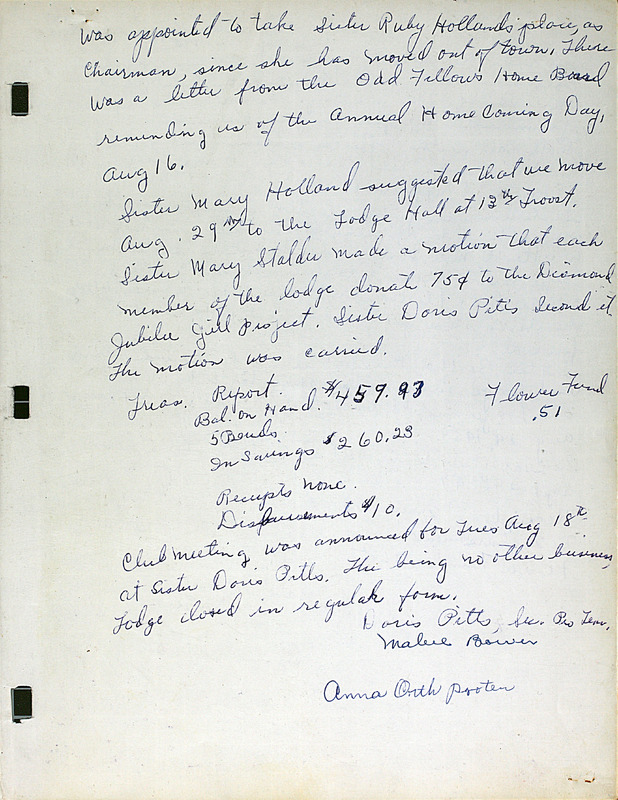 was appointed to take Sister Ruby Hollands' place, as
Chairman, since she has moved out of town. There
was a letter from the Odd Fellows Home Board
reminding us of the Annual Home Coming Day,
Aug 16.
Sister Mary Holland suggested that we move
Aug. 29 to the Lodge Hall at 13th Troost.
Sister Mary Stalder made a motion that each
member of the lodge donate 75¢ to the Diamond
Jubilee Girl project. Sister Doris Pitts Second it
The motion was carried.
Treas. Report.
Bal. on Hand. $459.93
Flower Fund
.51
5 Bonds.
In Savings $260.23
Receipts None.
Disbursements $10.
Club meeting was announced for Tues Aug 18th
at Sister Doris Pitts. The being no other business
Lodge closed in regular form.
Doris Pitts, Sec. Pro Tem.
Bower
Anna Orth protem